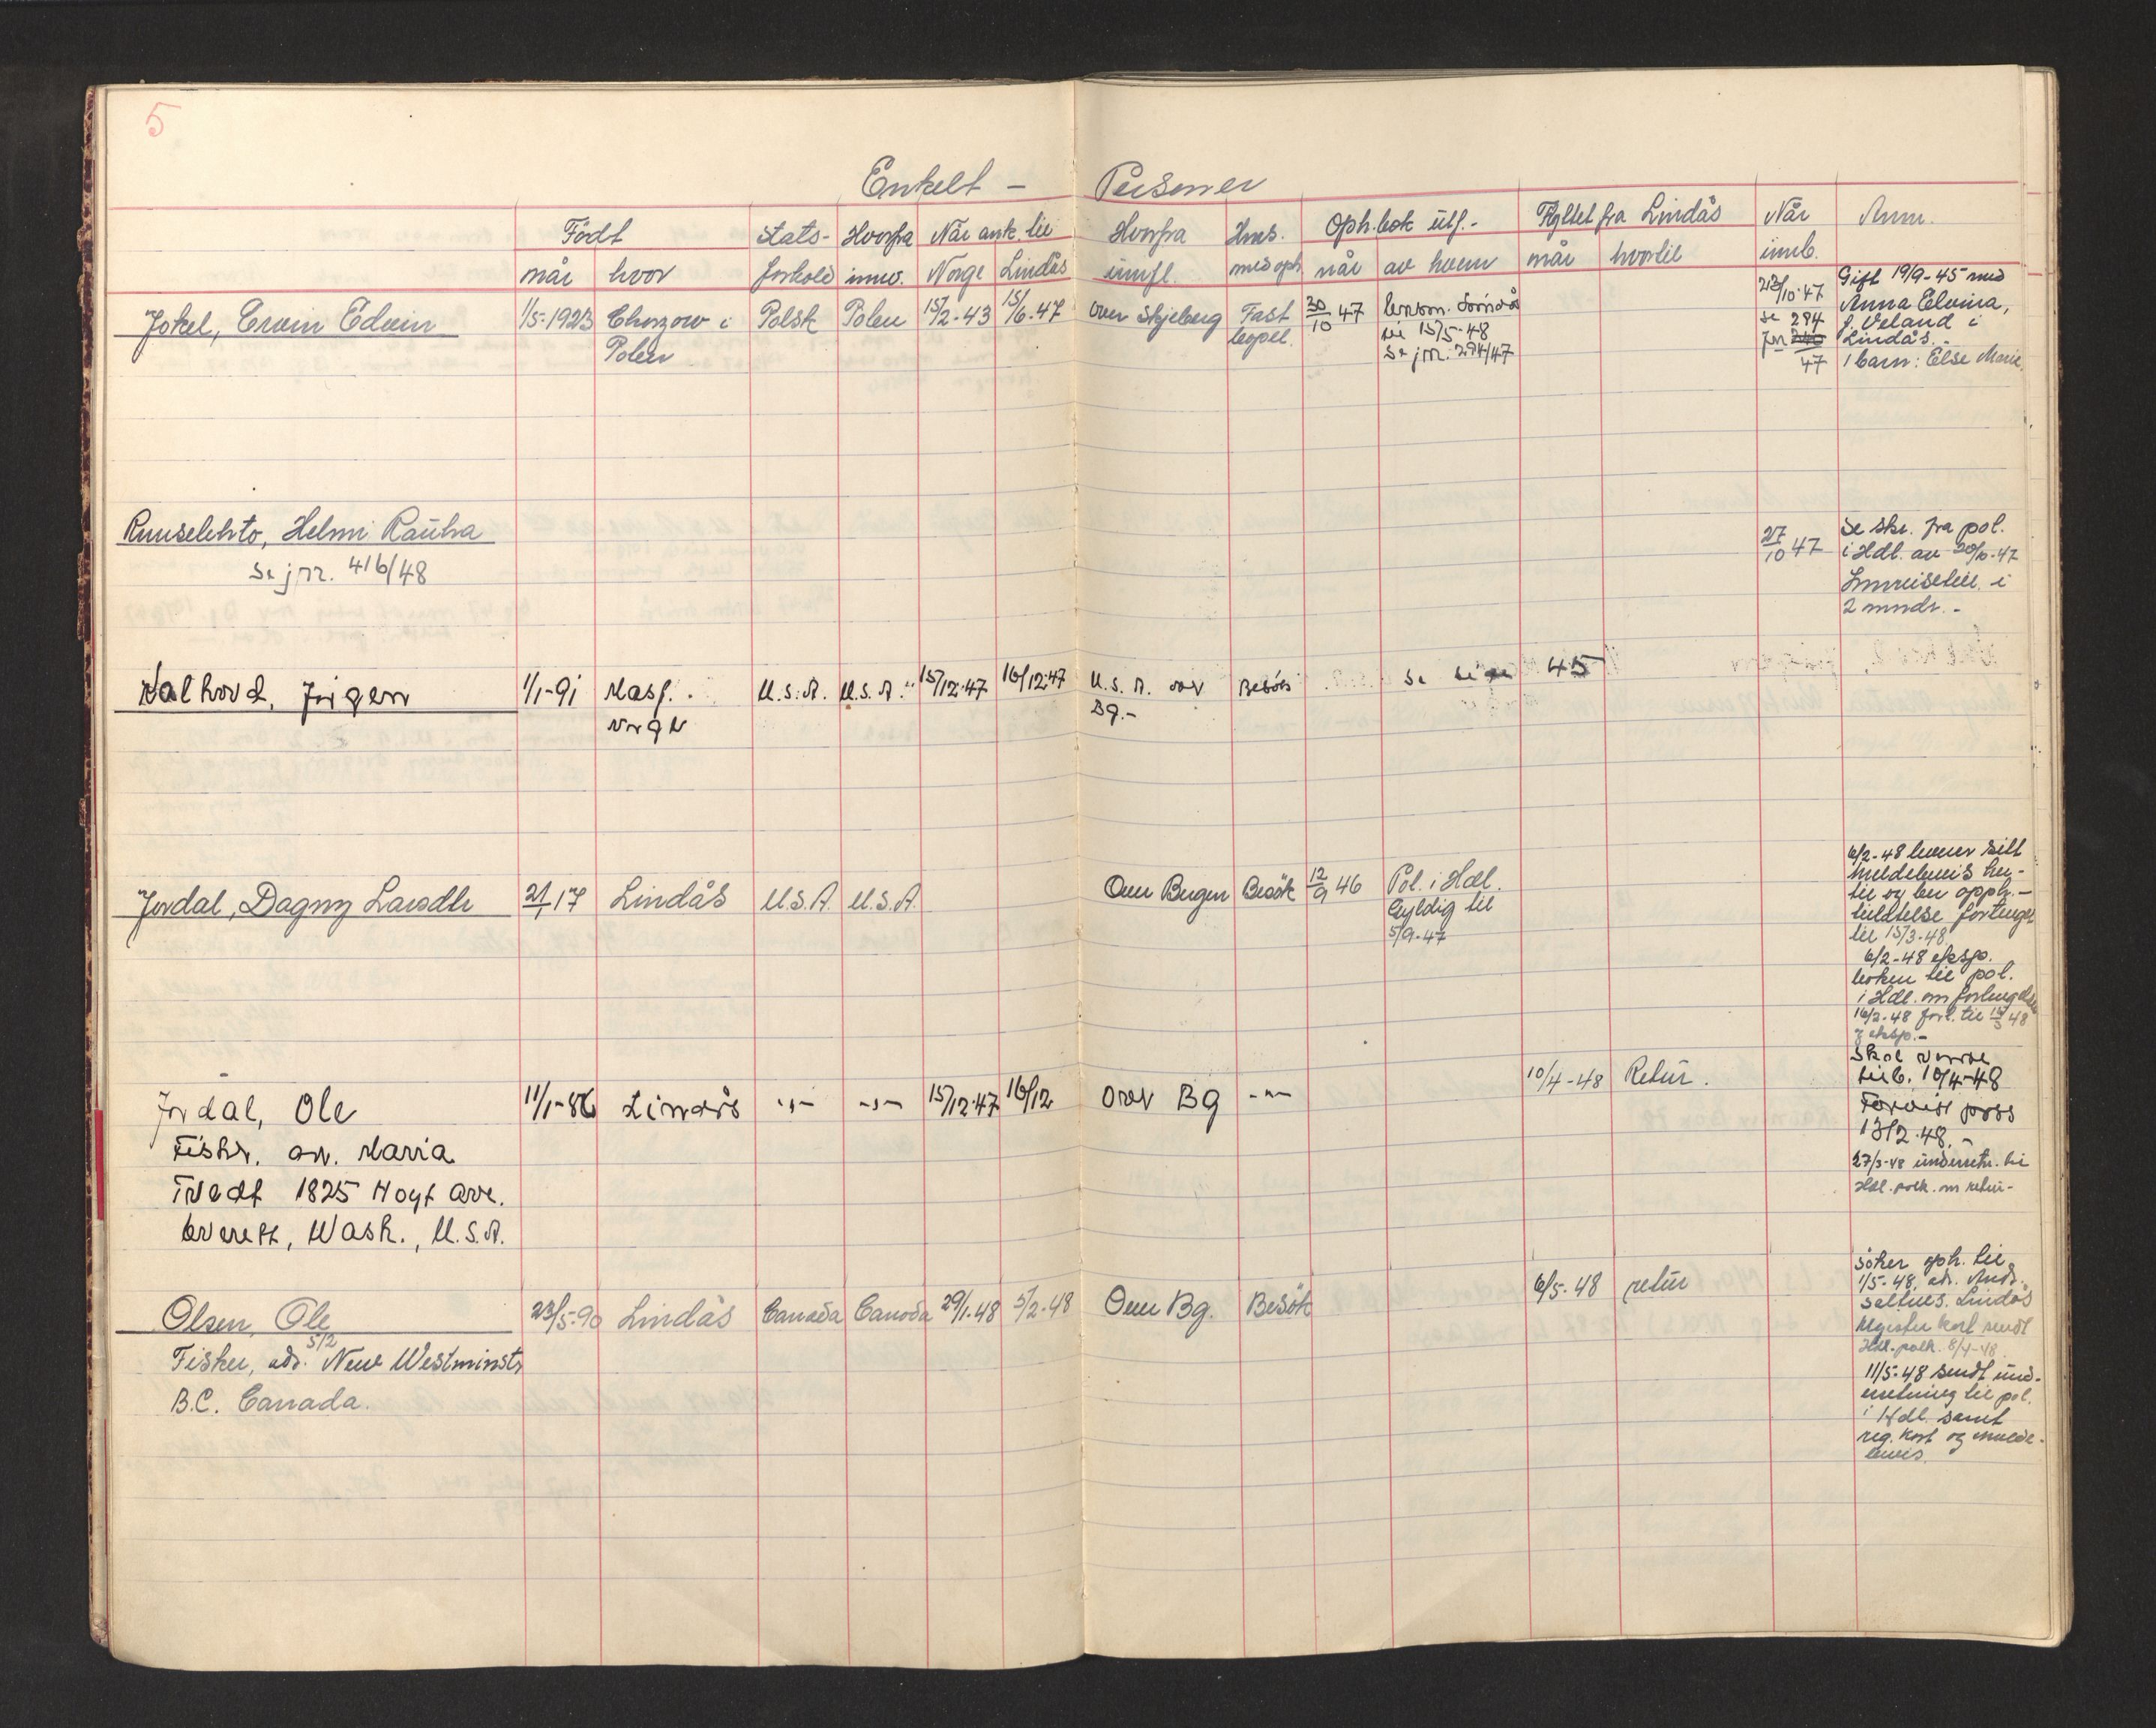 5
Enkelt - Personer
Født Stats- Hvorfra Når ank. til Hvorfra Hens. Oph.bok utf.- Flyttet fra Lindås Når Anm.
når hvor forhold innv. Norge Lindås innfl. med oph når av hvem når hvortil innb.
Jokel, Erwin Edwin 1/5-1923 Chorzow i Polsk Polen 15/2-43 15/6-47 over Skjeberg Fast 30/10 47 23/10-47 Gift 19/9-45 med
Polen til 15/5-48 se 294 Anna Elvina,
Se jnr. 294/47 jnr f. Veland i
Lindås.-
47 1 barn: Else Marie.
Ruuselehto, Helmi Rauha 27/10 47 Se skr. fra pol.
Se jnr. 416/48 i Hdl. av 20/10-47
Innreisetill. i
2 mndr.-
Valhovd, Jørgen 1/1-91 Masf. U.S.A. U.S.A. 15/12-47 16/12-47 U.S.A. over Besøk Se side 45
Norge Bg.-
Jordal, Dagny 21/1 17 Lindås U.S.A. U.S.A. Over Bergen Besøk 12/9 46 Pol. i Hdl.
Gyldig til
5/9-47
6/2-48 leverer sitt
meldebevis her-
til og ber opph.-
tillatelse forlenget
til 15/3-48.
6/2-48 eksp.
boken til pol.
i Hdl. om forlengelse
16/2-48 forl. til 15/3 48
Jordal, Ole 11/1-86 Lindås -"- -"- 15/12-47 16/12 over Bg -"- 10/4-48 Retur.
Fisker. adr. Maria
Tvedt 1825 Hoyt Ave.
Everett, Wash., U.S.A.
Skal
10/4-48
Forevist pass
13/2-48.-
27/3-48 underretn. til
Hdl. polk. om retur-
Olsen, Ole 23/5-90 Lindås Canada Canada 29/1-48 5/2-48 Over Bg. Besøk 6/5-48 retur
5/2
Fisker, adr. New Westminstr
B.C. Canada.
Søker oph. til
1/5-48, adr. Andr.
Seltnes. Lindås
Register kort sendt
Hdl. polk. 8/4-48.
11/5-48 sendt und-
erretning til pol.
i Hdl. samt
reg. kort og melde-
bevis.